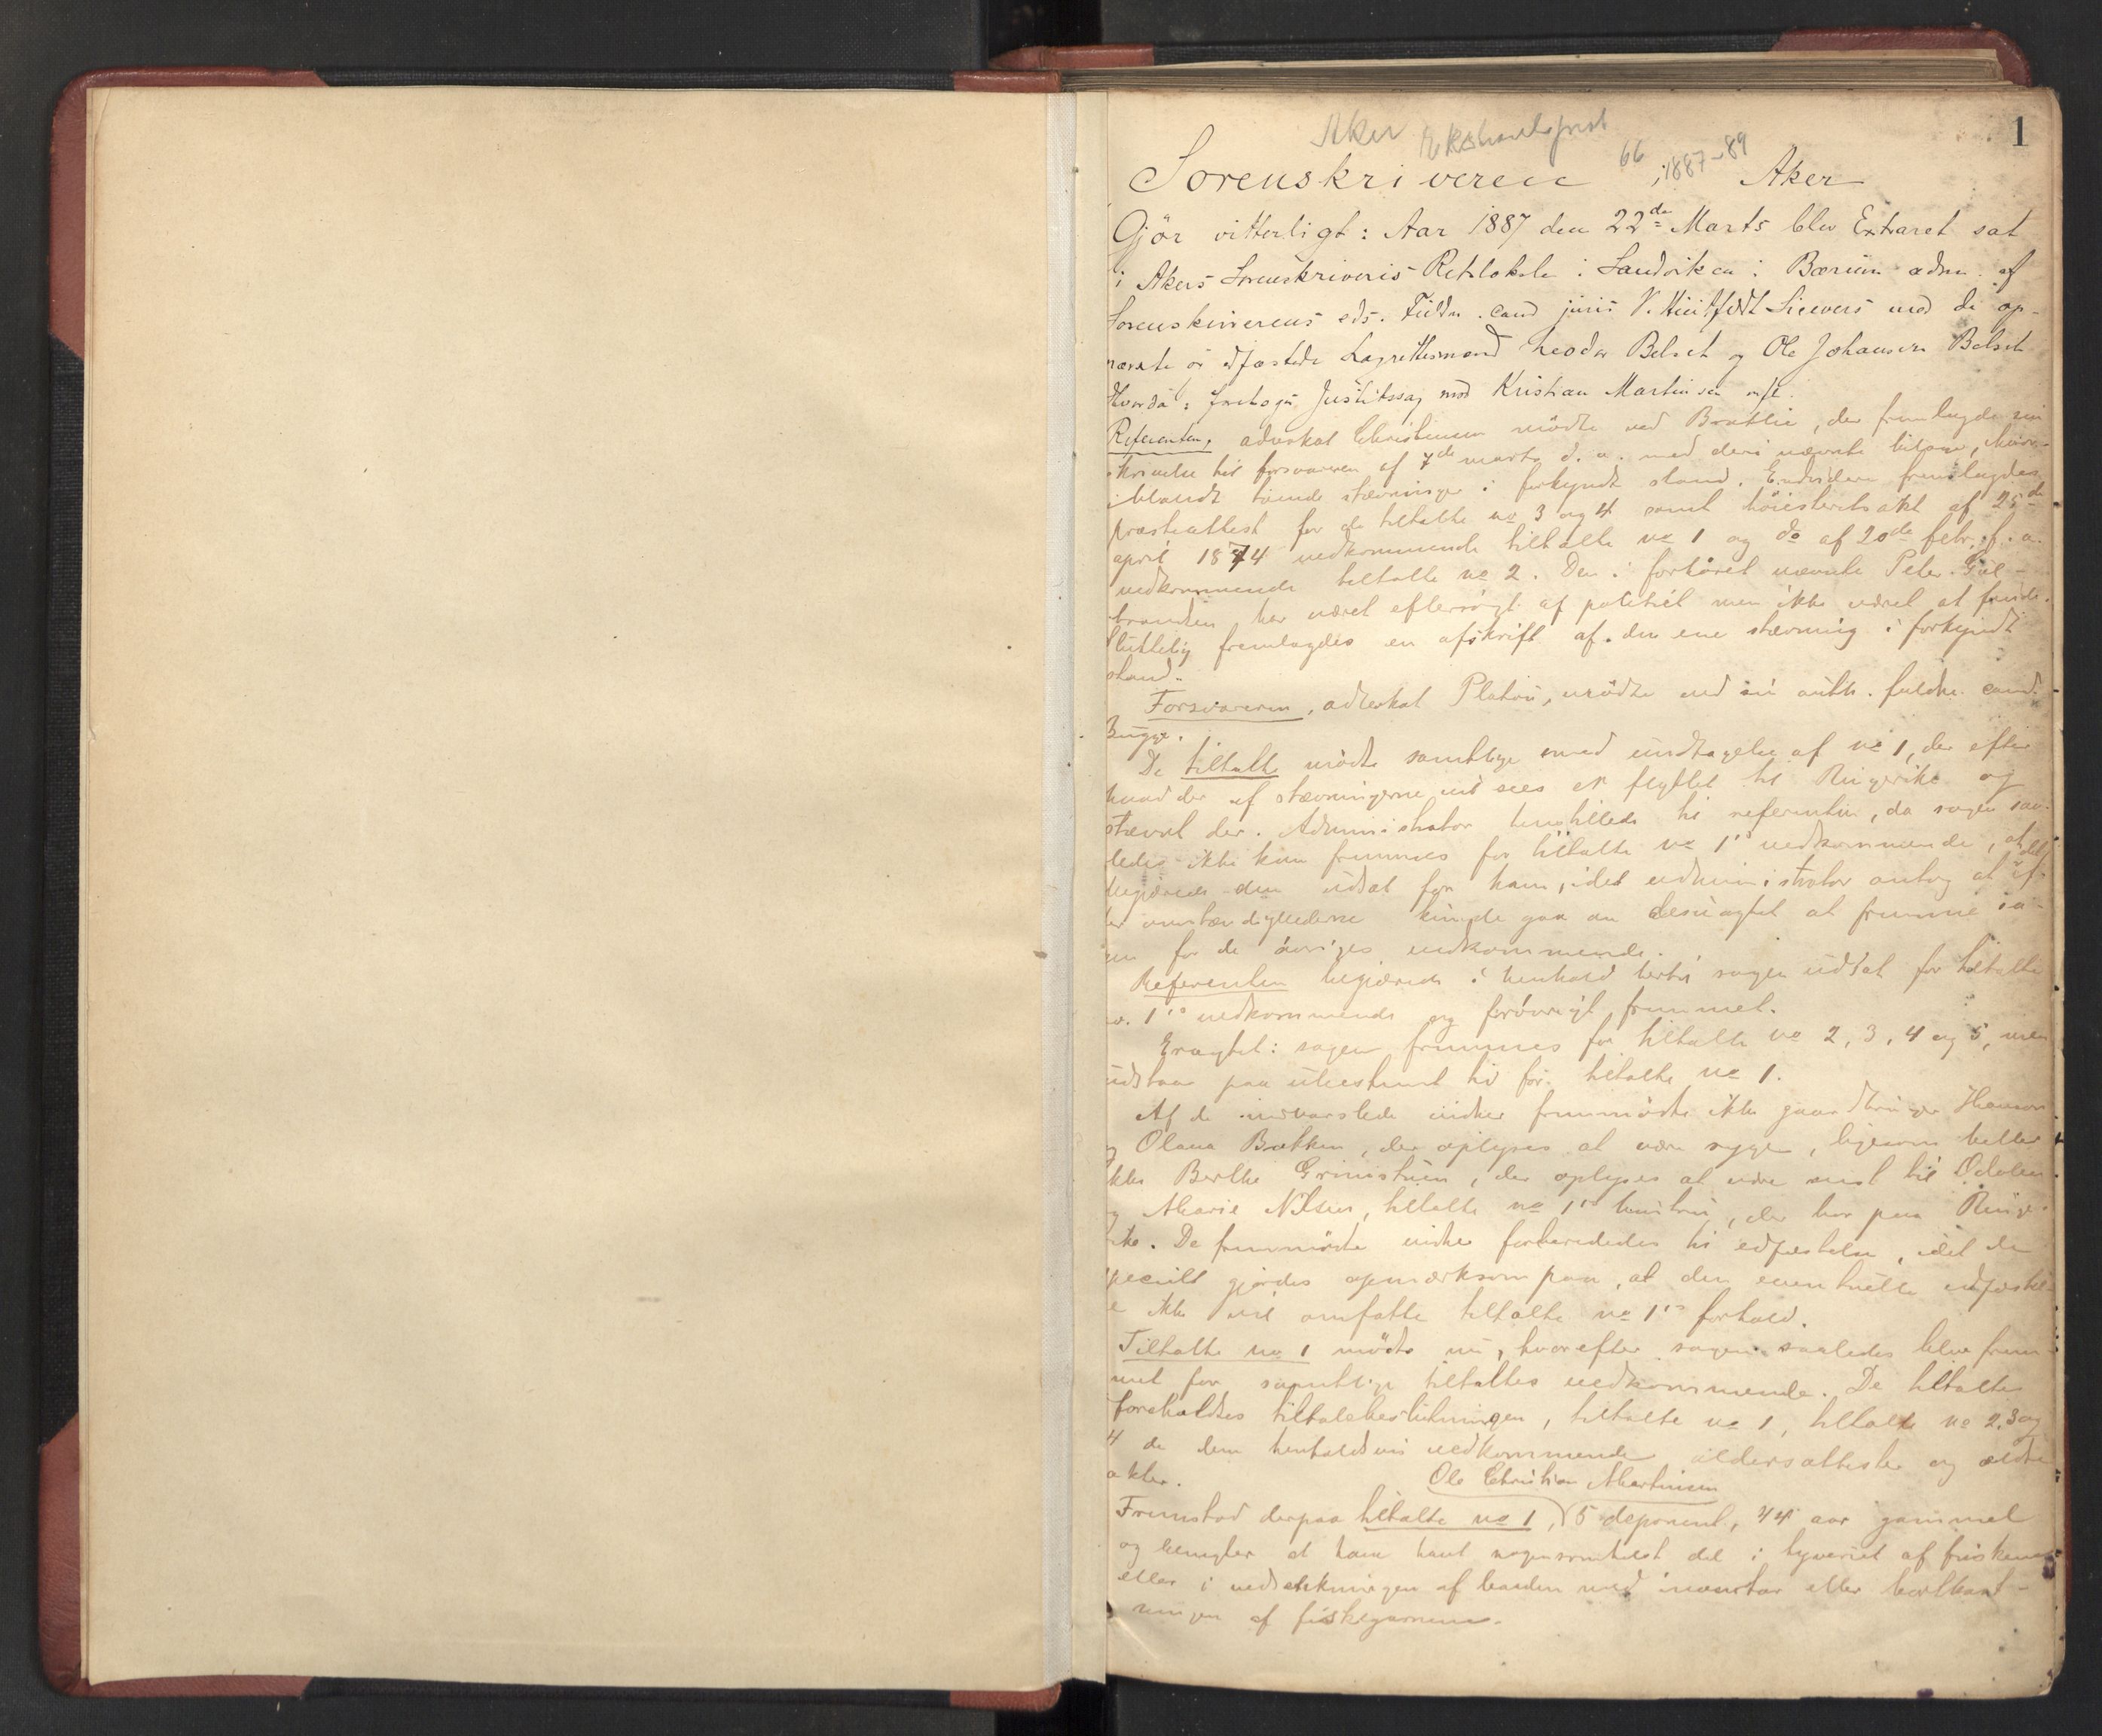 1
Aker
66 1887-89
Sorenskriveren i Aker
Gjör vitterligt: Aar 1887 den 22de Marts blev Extraret sat
i Akers Sorenskriveris Retslokale i Sandviken i Bærum adm. af
Sorenskriverens eds. Fuldm. cand juris V. Huitfeldt Sievers med de op-
nævnte og edfæstede Lagrettesmænd Theodor Belset og Ole Johansen Belset
Hvorda: foretoges Justitssag mod Kristian Martinsen m/fl.
Referenten, advokat Christensen mödte ved Brattlie, der fremlagde sin
skrivelse til forsvareren af 7de marts d. a. med deri nævnte bilage, hvor-
iblandt tvende stævninger i forkyndt stand. Endvidere fremlagdes
præsteattest for de tiltalte no 3 og 4 samt höiesteretsakt af 25de
april 1874 vedkommende tiltalte no 1 og do af 20de febr. f. a.
vedkommende tiltalte no 2. Den i forhöret nævnte Peter Gul-
brandsen har været eftersögt af politiet men ikke været at finde.
Sluttelig fremlagdes en afskrift af den ene stævning i forkyndt
stand.
Forsvareren, advokat Platou, mödte ved sin auth. fuldm. cand.
Bugge.
De tiltalte mödte samtlige med undtagelse af no 1, der efter
hvad der af stævningerne vil sees er flyttet til Ringerike og
stævnt der. Administrator henstillede til referenten, da sagen saa-
ledes ikke kan fremmes for tiltalte no 1's vedkommende, at
begjære den udsat for ham, idet administrator antog at det ef-
ter omstændighederne kunde gaa an desuagtet at fremme sa-
gen for de övriges vedkommende.
Referenten begjærede i henhold hertil sagen udsat for tiltalte
no. 1's vedkommende og forövrigt fremmet.
Eragtet: sagen fremmes for tiltalte no 2, 3, 4 og 5, men
udstaar paa ubestemt tid for tiltalte no 1.
Af de indvarslede vidner fremmödte ikke gaardbruger Hansen
og Olava Bakken, der oplyses at være syge, ligesom heller
ikke Berthe Grinistuen, der oplyses at være reist til Odalen
og Marie Nilsen, tiltalte no 1's hustru, der bor paa Ringe-
rike. De fremmödte vidner forberededes til edfæstelse, idet de
specielt gjordes opmærksom paa, at den eventuelle edfæstel-
se ikke vil omfatte tiltalte no 1's forhold.
Tiltalte no 1 mödte nu, hvorefter sagen saaledes blev frem-
met for samtlige tiltaltes vedkommende. De tiltalte
foreholdtes tiltalebeslutningen, tiltalte no 1, tiltalte no 2, 3 og
4 de dem henholdsvis vedkommende aldersattester og ældre
akter.
Ole Christian Martinsen
Fremstod derpaa tiltalte no 1, 5 deponent, 44 aar gammel
og benegter at have havt nogensomhelst del i tyveriet af fiskene
eller i nedsænkningen af baaden med inventar eller bortkast-
ningen af fiskegarnene.